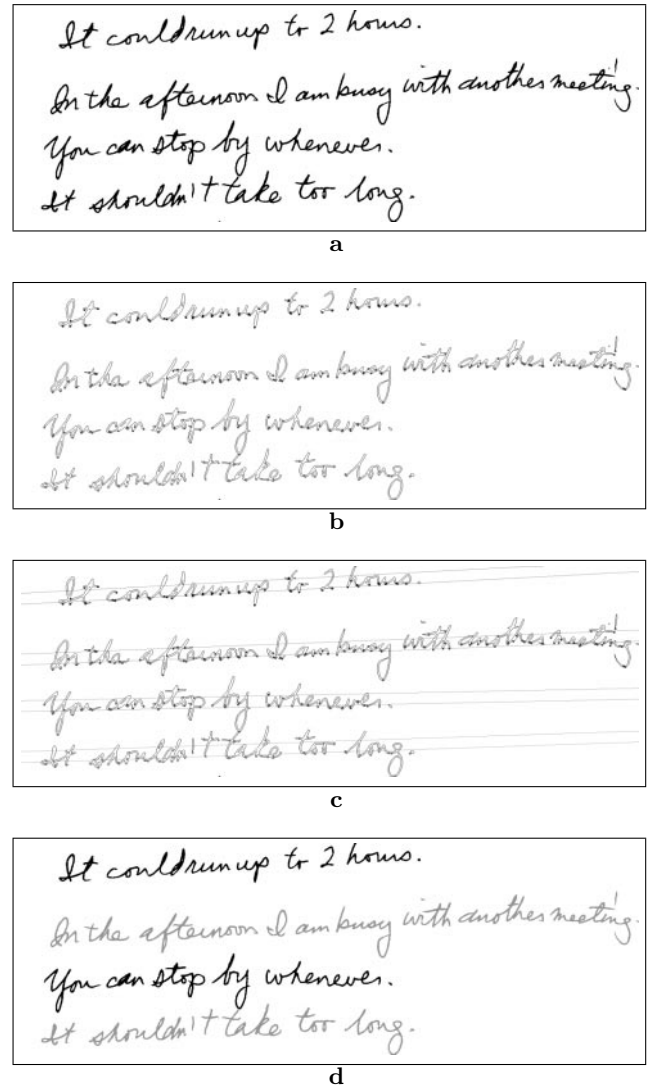 It could run up to 2 hours.
In the afternoon I am busy with another meeting.
You can stop by whenever.
It shouldn't take too long.
a
It could run up to 2 hours.
In the afternoon I am busy with another meeting.
You can stop by whenever.
It shouldn't take too long.
b
It could run up to 2 hours.
In the afternoon I am busy with another meeting.
You can stop by whenever.
It shouldn't take too long.
c
It could run up to 2 hours.
In the afternoon I am busy with another meeting.
You can stop by whenever.
It shouldn't take too long.
d